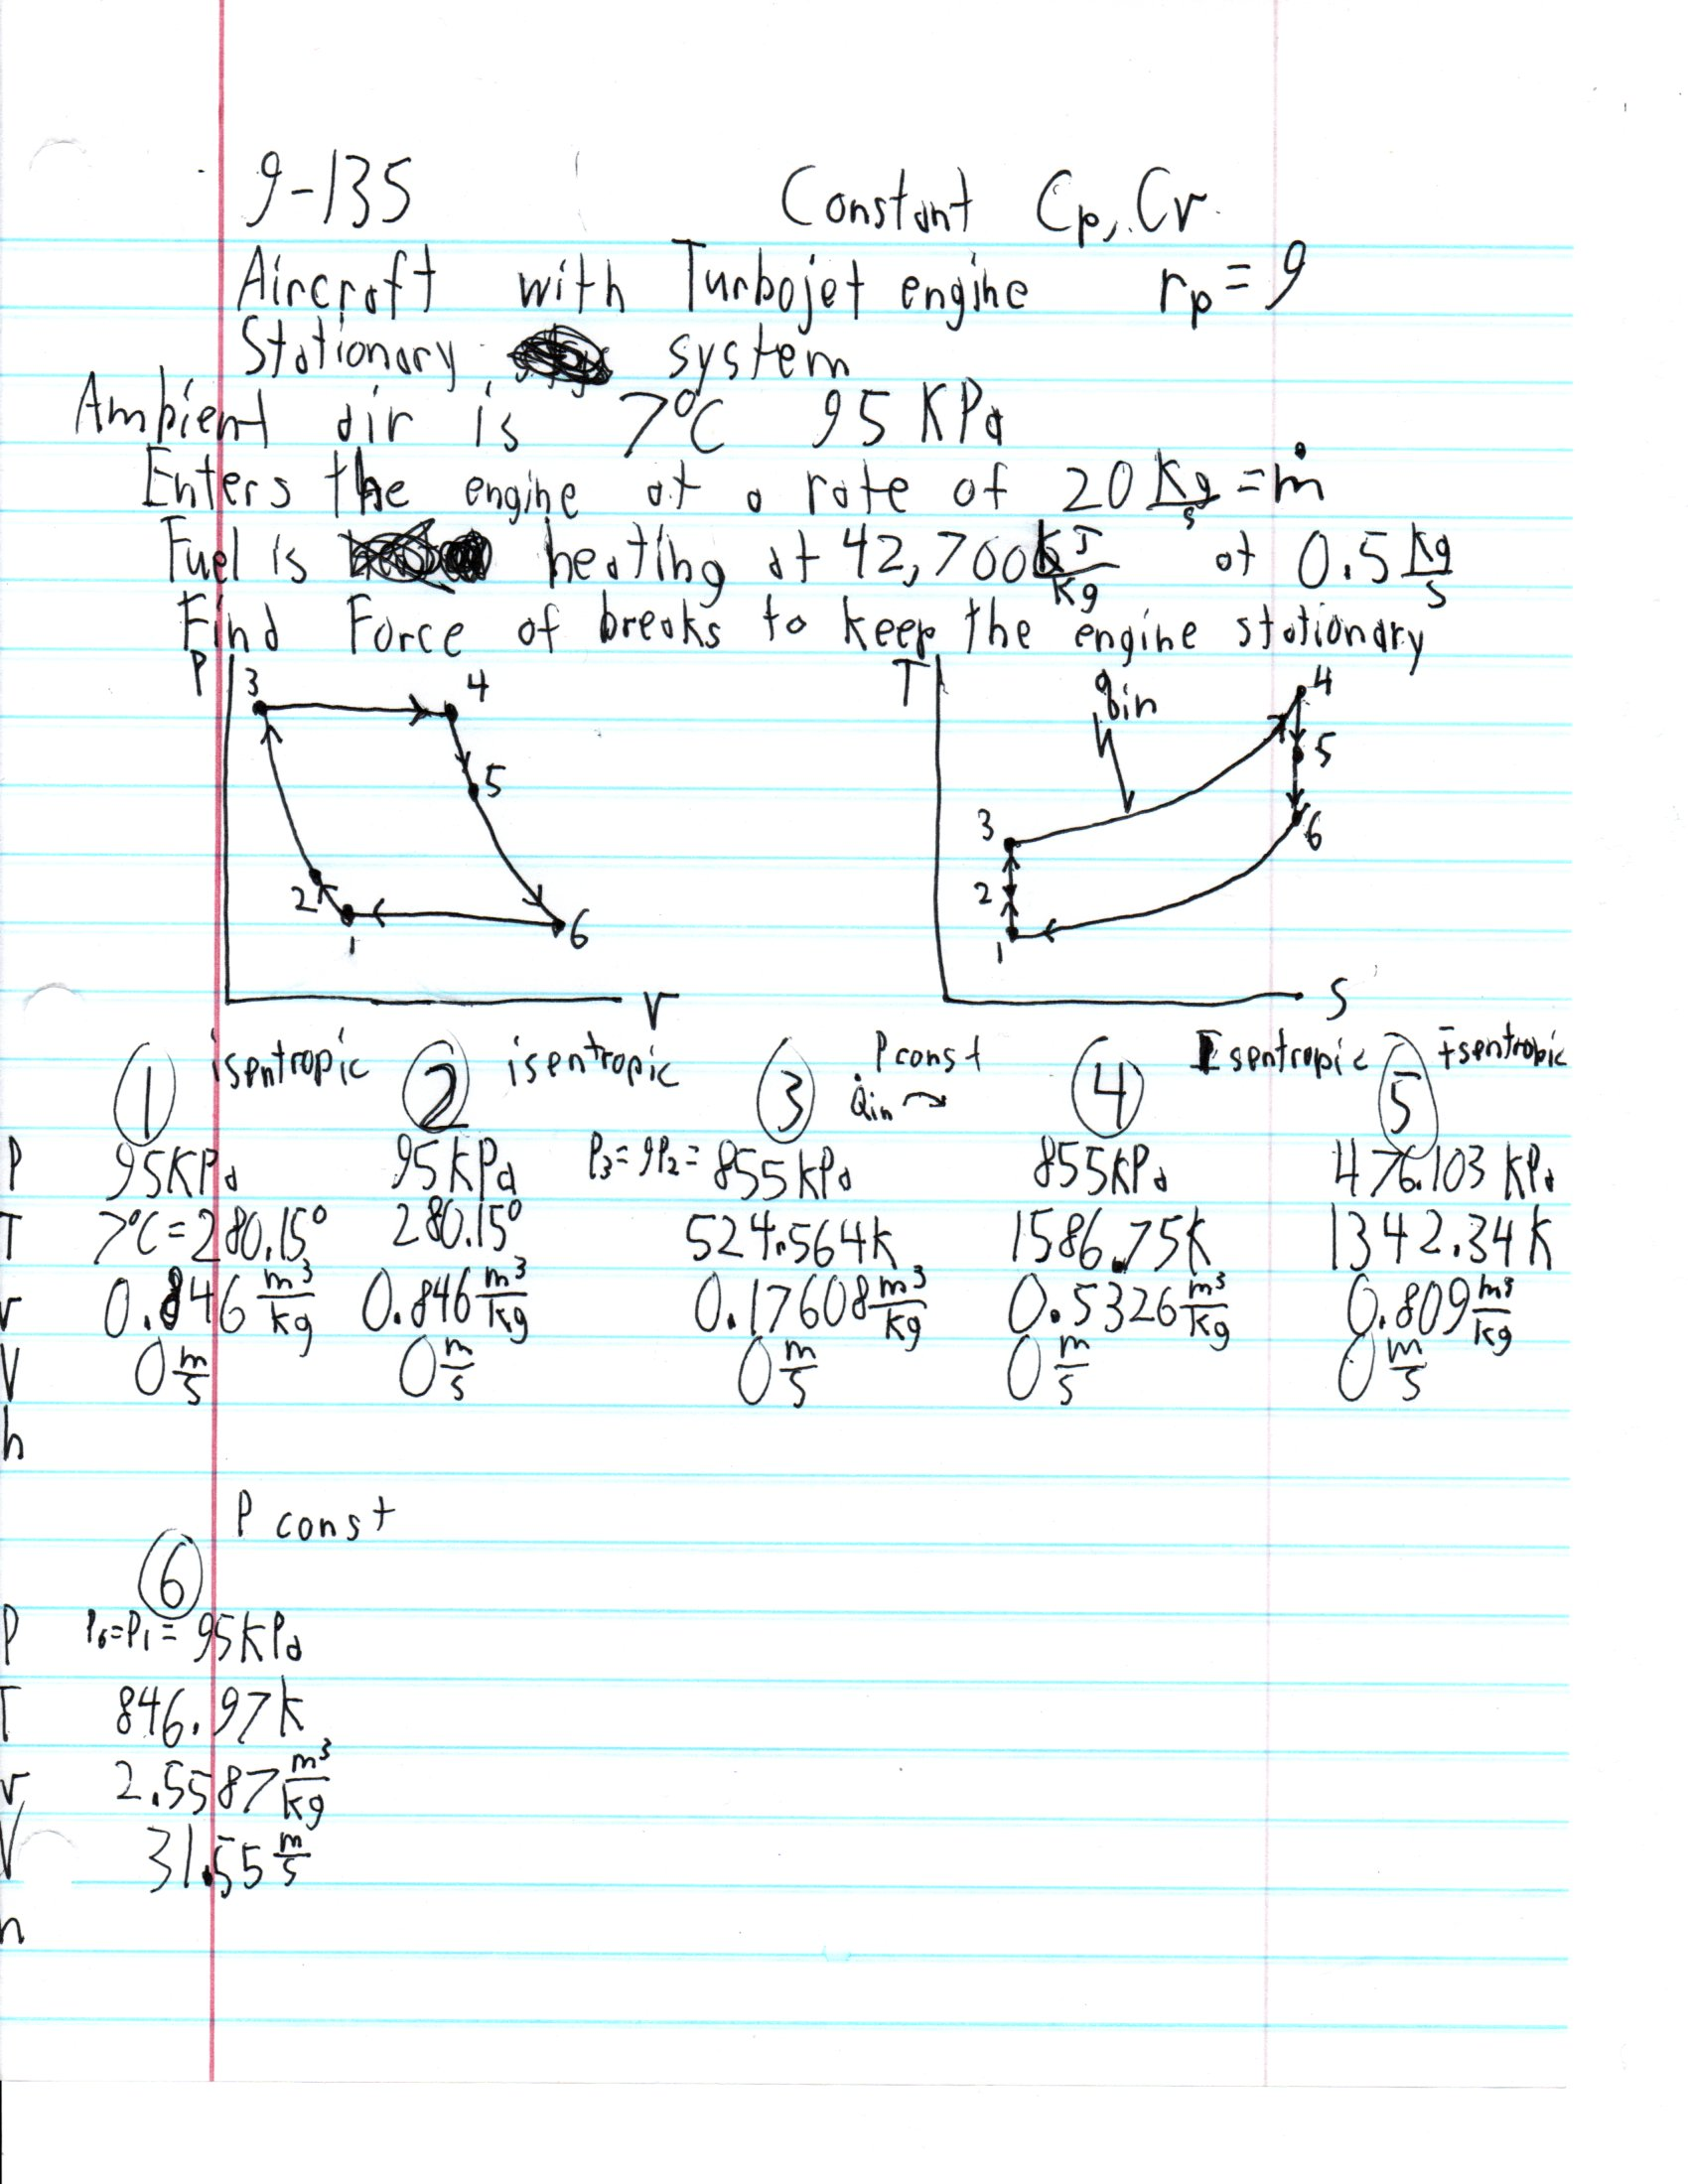 9-135 Constant Cp, Cv
Aircraft with Turbojet engine rp = 9
Stationary system
Ambient air is 7°C 95 KPa
Enters the engine at a rate of 20 Kg/s = ṁ
Fuel is heating at 42,700 kJ/kg at 0.5 Kg/s
Find Force of breaks to keep the engine stationary
P 3 4 5 2 1 6 v
T qin 4 5 3 6 2 1 s
① isentropic ② isentropic ③ P const Q̇in → ④ Isentropic ⑤ Isentropic
P 95KPa 95kPa P3=9P2= 855kPa 855kPa 476.103 kPa
T 7°C=280.15° 280.15° 524.564k 1586.75k 1342.34k
v 0.846 m³/kg 0.846 m³/kg 0.17608 m³/kg 0.5326 m³/kg 0.809 m³/kg
V 0 m/s 0 m/s 0 m/s 0 m/s 0 m/s
h
⑥ P const
P P6=P1= 95kPa
T 846.97k
v 2.5587 m³/kg
V 31.55 m/s
h